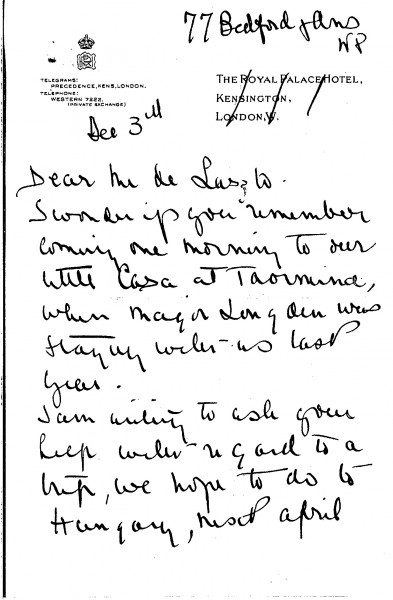 77 Bedford Gdns
W8
TELEGRAMS:
PRECEDENCE, KENS, LONDON.
TELEPHONE:
WESTERN 7222.
(PRIVATE EXCHANGE)
THE ROYAL PALACE HOTEL,
KENSINGTON,
LONDON, W.
Dec 3rd
Dear Mr de Laszlo.
I wonder if you remember
coming one morning to our
little Casa at Taormina,
when Major Longden was
staying with us last
year.
I am writing to ask your
help with regard to a
trip, we hope to do to
Hungary, next April